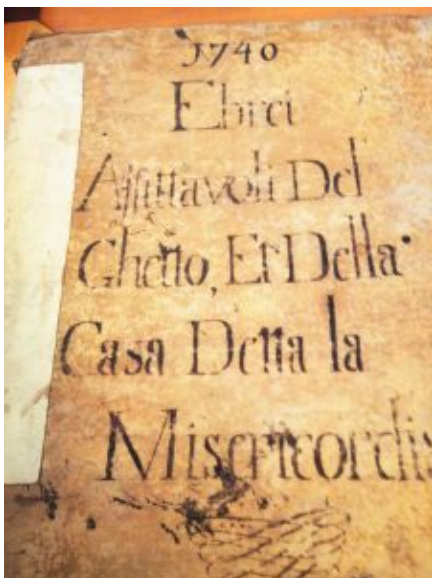 1740
Ebrei
Affittavoli Del
Ghetto, Et Della
Casa Detta la
Misericordia